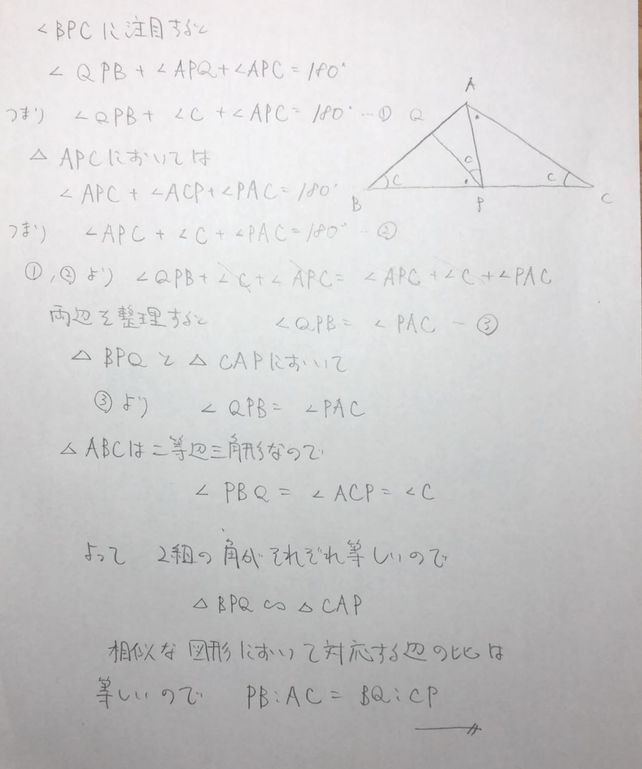 ∠BPCに注目すると
∠QPB+∠APQ+∠APC=180°
つまり ∠QPB+∠C+∠APC=180°…①
△APCにおいては
∠APC+∠ACP+∠PAC=180°
つまり ∠APC+∠C+∠PAC=180°…②
①,②より ∠QPB+∠C+∠APC=∠APC+∠C+∠PAC
両辺を整理すると ∠QPB=∠PAC…③
△BPQと△CAPにおいて
③より ∠QPB=∠PAC
△ABCは二等辺三角形なので
∠PBQ=∠ACP=∠C
よって 2組の角がそれぞれ等しいので
△BPQ∽△CAP
相似な図形において対応する辺の比は
等しいので PB:AC=BQ:CP
A
Q
C
C
C
B
P
C